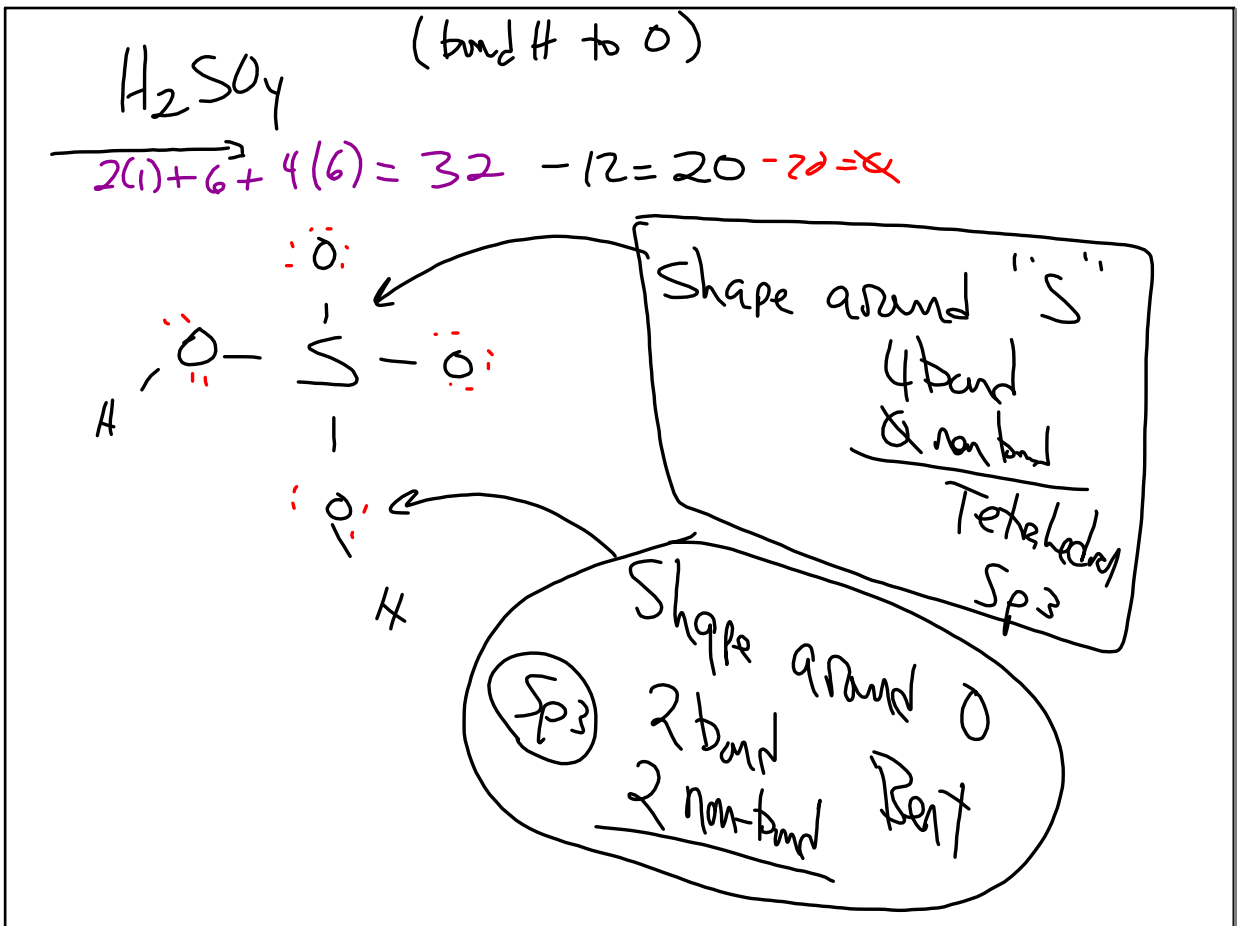 (bond H to O)
H₂SO₄
2(1)+6+4(6)=32 -12=20 -20=0
O
H O-S-O
O
H
Shape around "S"
4 bond
0 non bond
Tetrahedral
Sp3
Shape around O
Sp3 2 bond
2 non-bond Bent